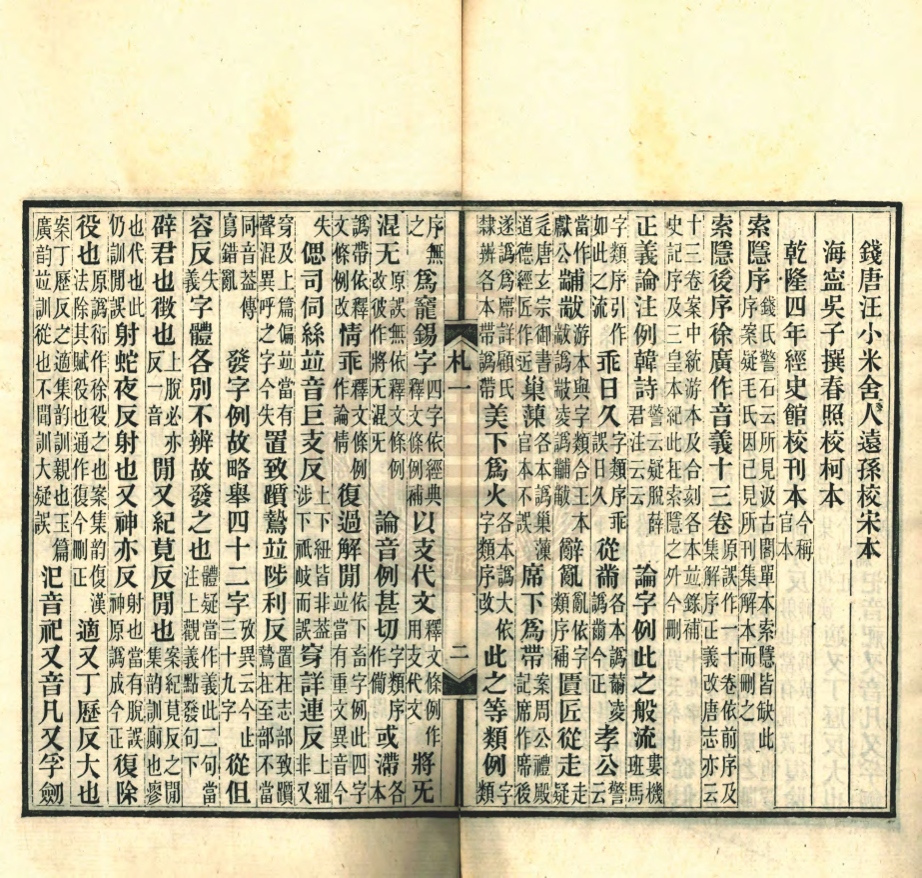 錢唐汪小米舍人遠孫校宋本
海寍吳子撰春照校柯本
乾隆四年經史館校刊本今稱官本
索隱序錢氏警石云所見汲古閣單本索隱皆缺此序案疑毛氏因已見所刊集解本而刪之
索隱後序徐廣作音義十三卷原誤作一十卷依前序及集解序正義改唐志亦云
十三卷案中統游本及合刻各本竝錄補史記序及三皇本紀此在索隱之外今刪
正義論注例韓詩警云疑脫薛君注云云 論字例此之般流婁機班馬
字類序引作如此之流 乖日久字類序乖誤日久 從黹各本譌凌譌今正 孝公警云
當作獻公 黼黻游本與字類合王本黻譌凌譌黼 辭亂辭亂依字類序補 匱匠從走走疑
辵唐玄宗御書道德經匠作远 巢藻各本譌巢官本不誤 席下爲帶案周公禮殿記席作後
遂譌爲廗詳顧氏隸辨各本帶譌帶 美下爲火各本譌大依字類序改 此之等類例字類
札一
二
序無之 爲寵錫字四字依經典釋文條例補 以支代文釋文條例作用支代文 將旡
混无原誤無依釋文條例改彼作將无混旡 論音例甚切字類序作備 或滯各本
譌帶依釋文條例改 情乖釋文條例作論情 復過解閒依下畜字例此四字竝當有重文異音今
失 偲司伺絲竝音巨支反上下紐皆非蓋涉下祇岐而誤 穿詳連反上紐非又
穿及上篇偏竝當有聲混異呼之字今失 置致躓鷙竝陟利反置在志部致躓鷙在至部不
同音蓋傳寫錯亂 發字例故略舉四十二字攷異云今止三十九字 從但
容反失義 字體各別不辨故發之也體疑當作義此二句當注上觀義點發句下
辟君也徵也上脫必亦反一音 閒又紀莧反閒也案紀莧反之閒集韵訓廁也瘳
也代也此仍訓閒誤 射蛇夜反射也又神亦反射也當有脫誤神原譌成今正 復除
役也原譌衍作徐役之也案集韵復漢法除其賦役也通作復今刪正 適又丁歷反大也
案丁歷反之適集韵訓親也玉篇廣韵竝訓從也不聞訓大疑誤 汜音祀又音凡又孚劒